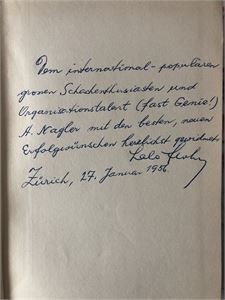 Dem international-populären
grossen Schachenthusiasten und
Organisationstalent (fast Genie!)
A. Nagler mit den besten, neuen
Erfolgwünschen herzlichst gewidmet.
Zürich, 27. Januar 1956